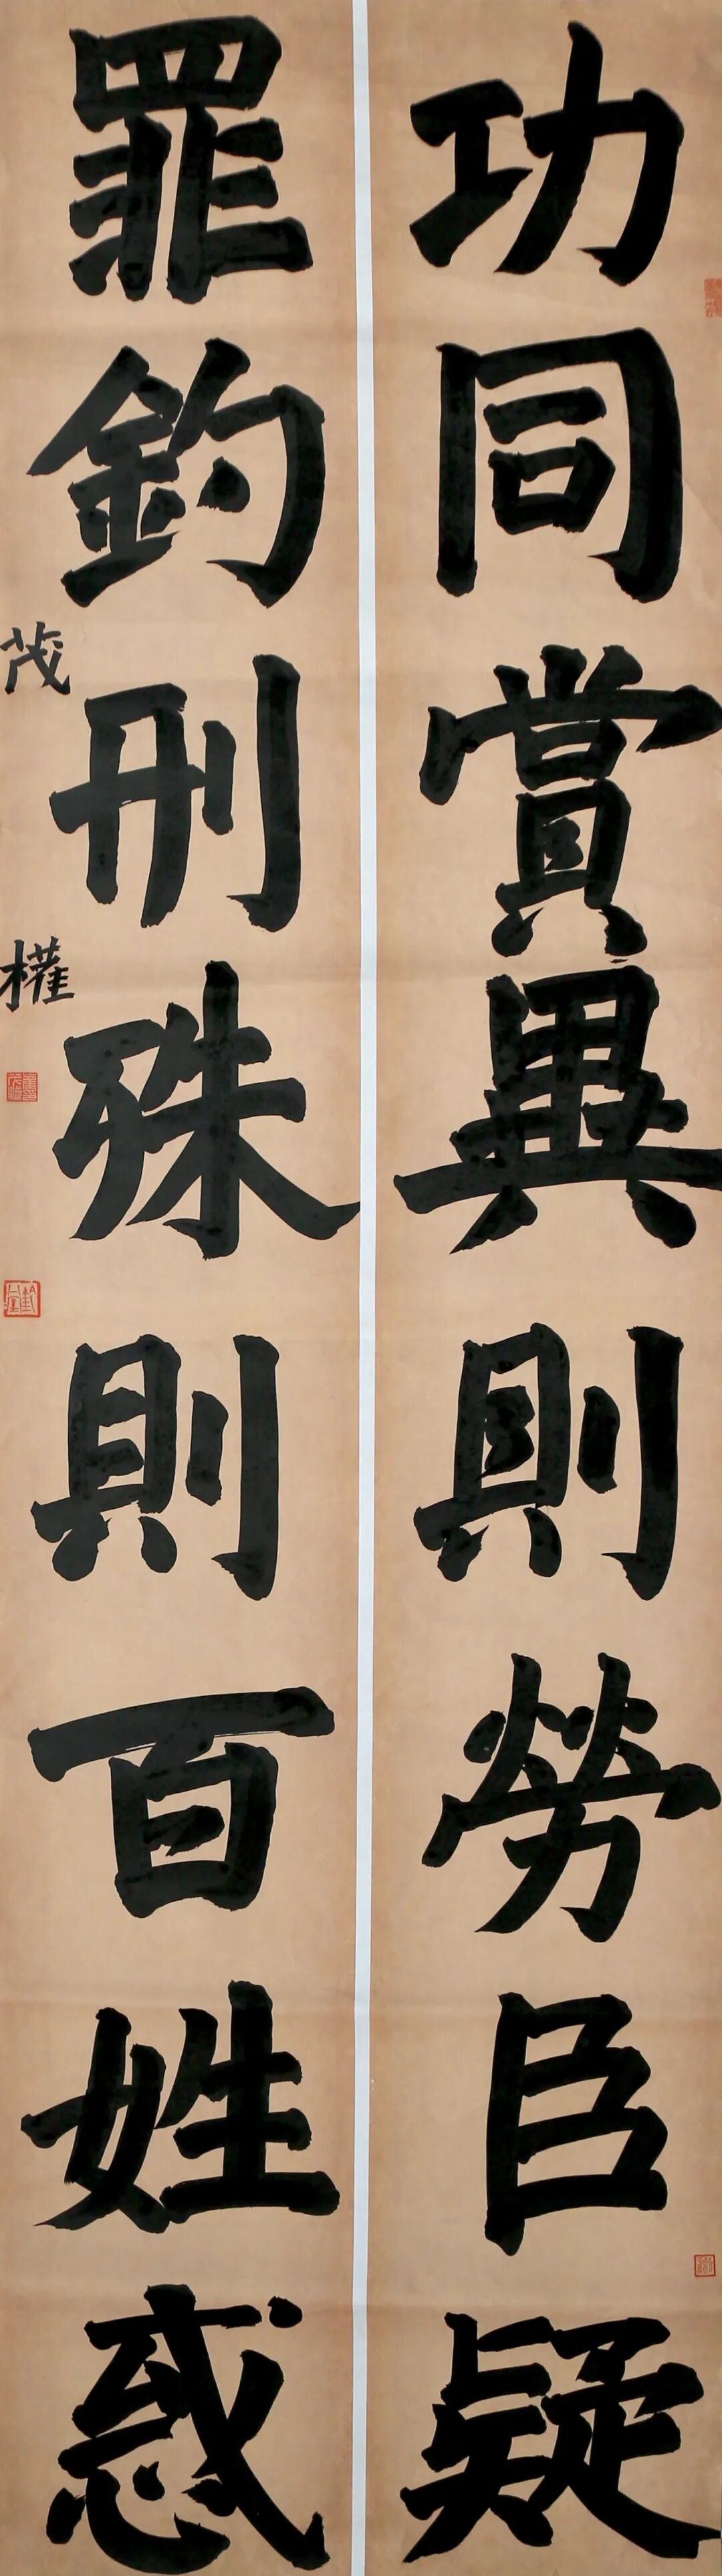 功同賞異則勞臣疑
罪鈞刑殊則百姓惑
茂權